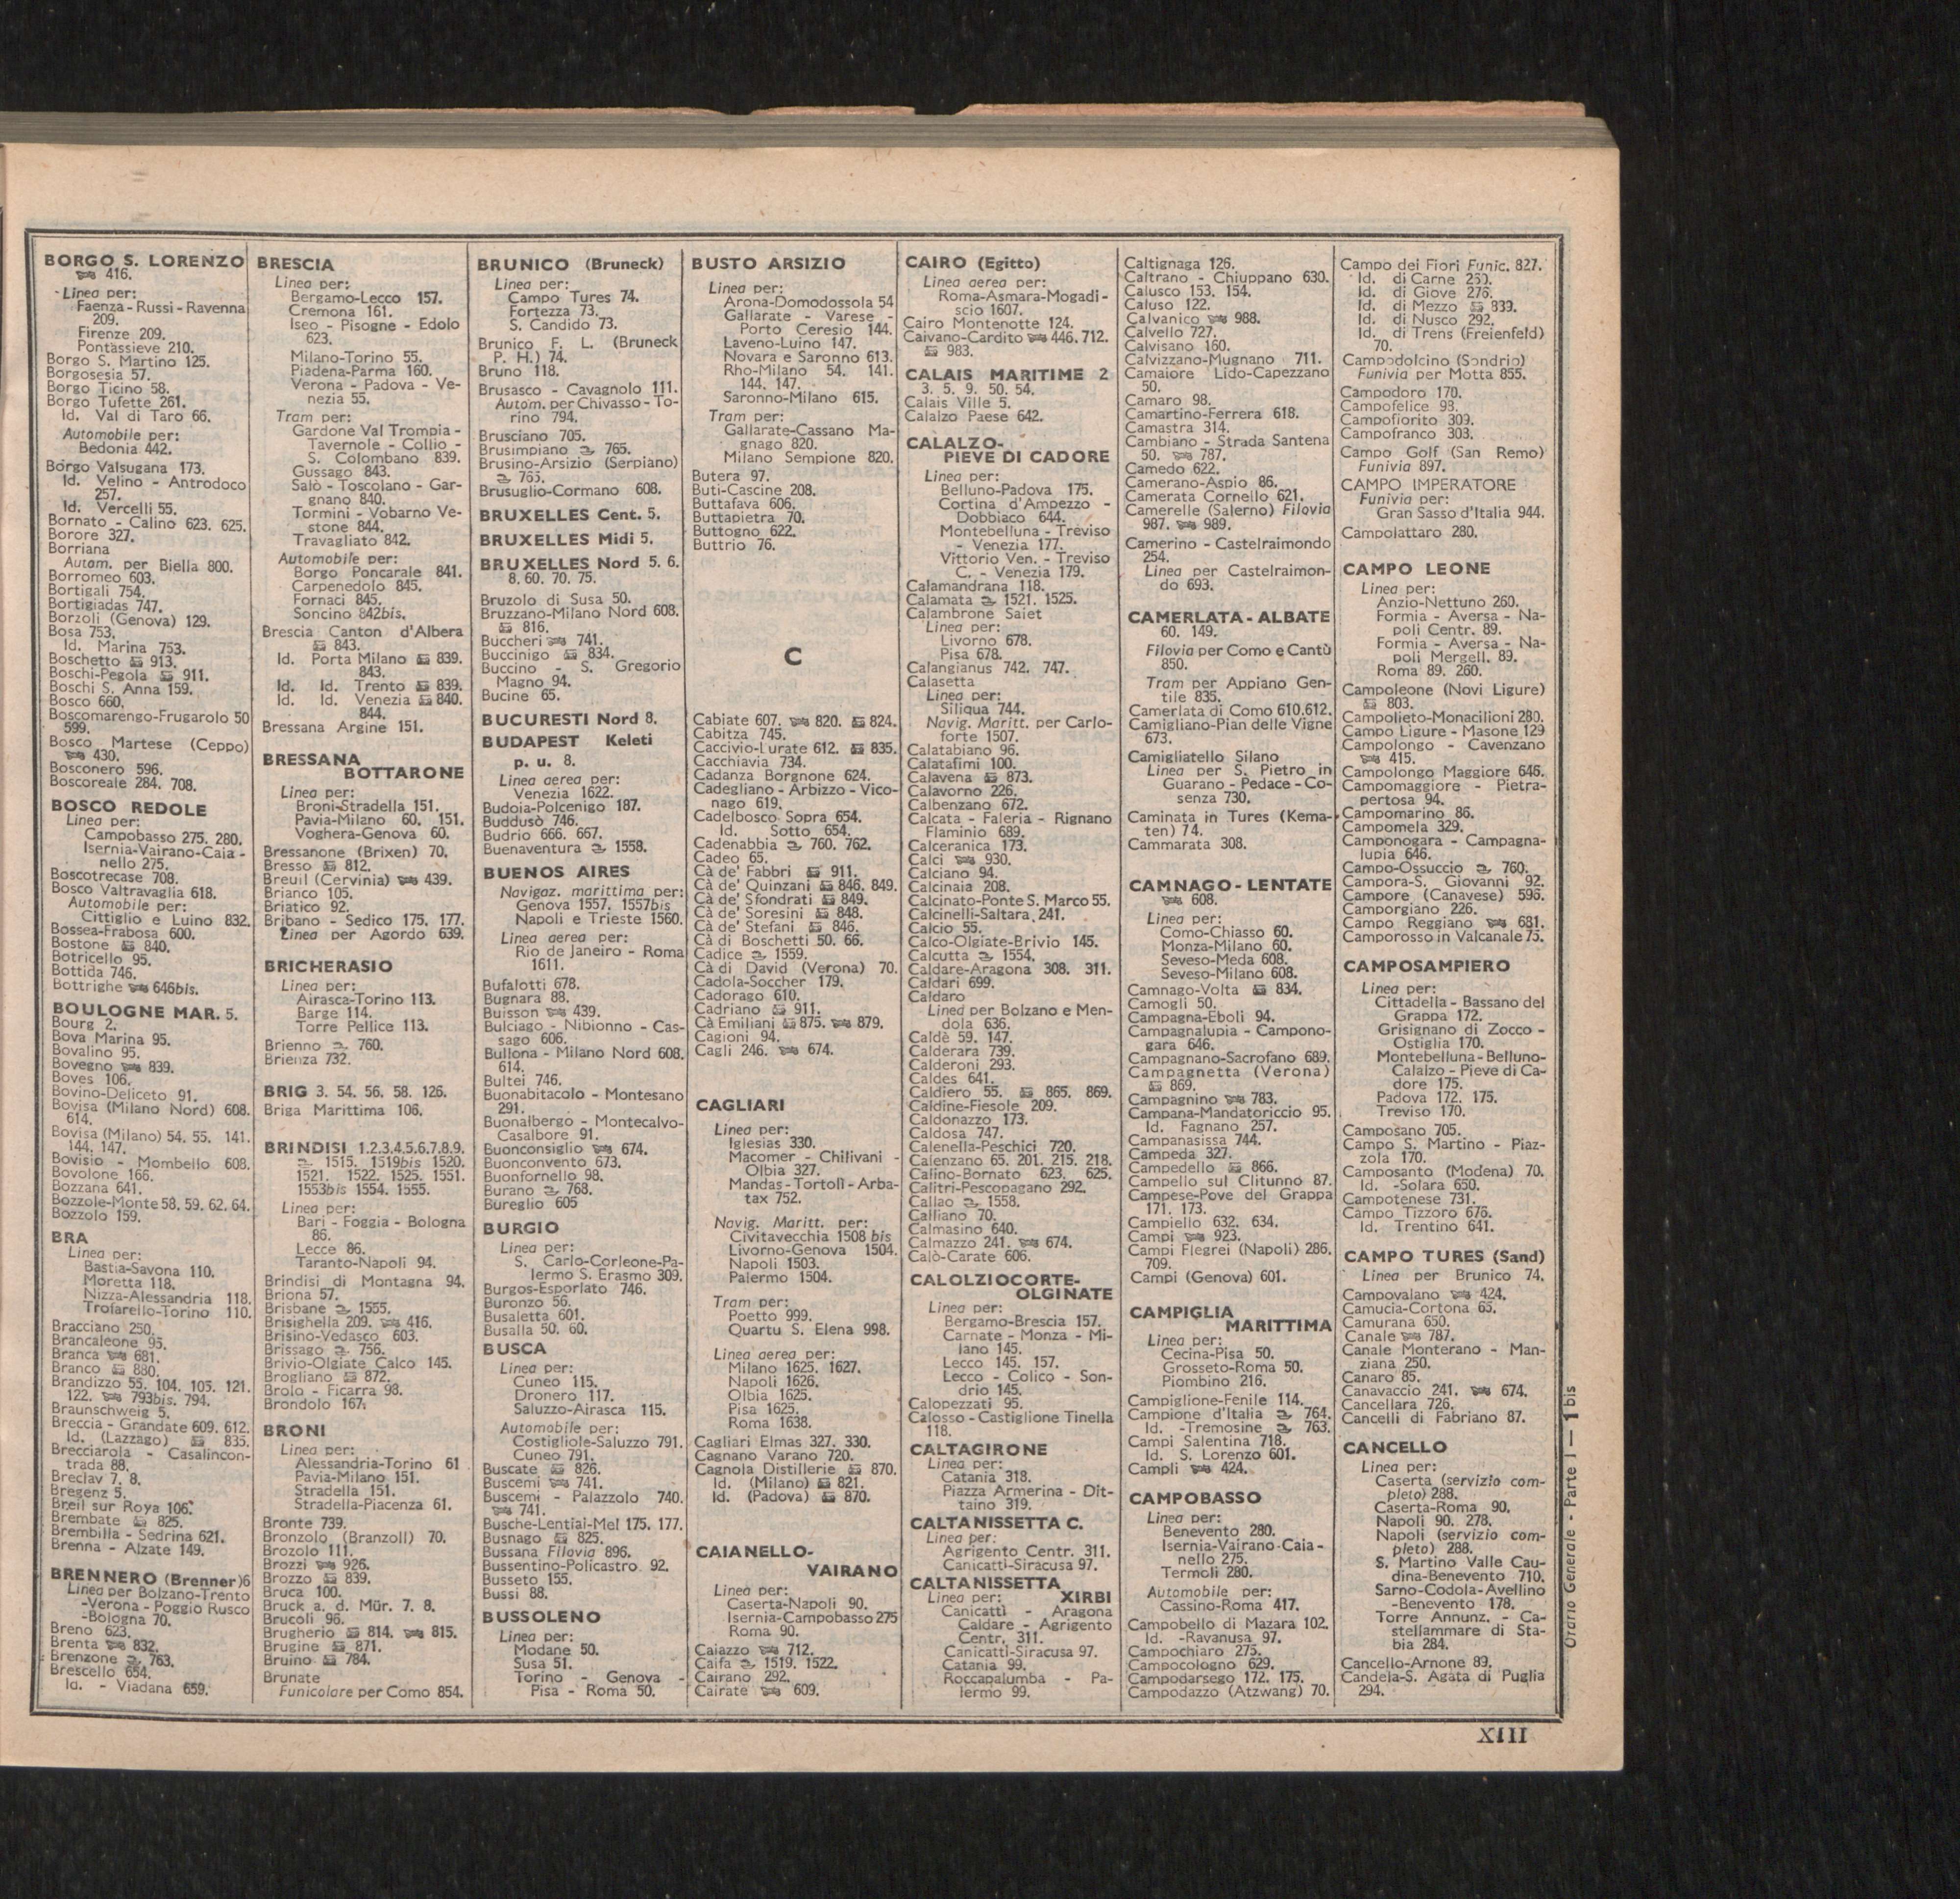 BORGO S. LORENZO
416.
Linea per:
Faenza - Russi - Ravenna
209.
Firenze 209.
Pontassieve 210.
Borgo S. Martino 125.
Borgosesia 57.
Borgo Ticino 58.
Borgo Tufette 261.
Id. Val di Taro 66.
Automobile per:
Bedonia 442.
Borgo Valsugana 173.
Id. Velino - Antrodoco
257.
Id. Vercelli 55.
Bornato - Calino 623. 625.
Borore 327.
Borriana
Autom. per Biella 800.
Borromeo 603.
Bortigali 754.
Bortigiadas 747.
Borzoli (Genova) 129.
Bosa 753.
Id. Marina 753.
Boschetto 913.
Boschi-Pegola 911.
Boschi S. Anna 159.
Bosco 660.
Boscomarengo-Frugarolo 50
599.
Bosco Martese (Ceppo)
430.
Bosconero 596.
Boscoreale 284. 708.
BOSCO REDOLE
Linea per:
Campobasso 275. 280.
Isernia-Vairano-Caia-
nello 275.
Boscotrecase 708.
Bosco Valtravaglia 618.
Automobile per:
Cittiglio e Luino 832.
Bossea-Frabosa 600.
Bostone 840.
Botricello 95.
Bottida 746.
Bottrighe 646bis.
BOULOGNE MAR. 5.
Bourg 2.
Bova Marina 95.
Bovalino 95.
Bovegno 839.
Boves 106.
Bovino-Deliceto 91.
Bovisa (Milano Nord) 608.
614.
Bovisa (Milano) 54. 55. 141.
144. 147.
Bovisio - Mombello 608.
Bovolone 166.
Bozzana 641.
Bozzole-Monte 58. 59. 62. 64.
Bozzolo 159.
BRA
Linea per:
Bastia-Savona 110.
Moretta 118.
Nizza-Alessandria 118.
Trofarello-Torino 110.
Bracciano 250.
Brancaleone 95.
Branca 681.
Branco 880.
Brandizzo 55. 104. 105. 121.
122. 793bis. 794.
Braunschweig 5.
Breccia - Grandate 609. 612.
Id. (Lazzago) 835.
Brecciarola - Casalincon-
trada 88.
Breclav 7. 8.
Bregenz 5.
Breil sur Roya 106.
Brembate 825.
Brembilla - Sedrina 621.
Brenna - Alzate 149.
BRENNERO (Brenner) 6
Linea per Bolzano-Trento
-Verona - Poggio Rusco
-Bologna 70.
Breno 623.
Brenta 832.
Brenzone 763.
Brescello 654.
Id. - Viadana 659.
BRESCIA
Linea per:
Bergamo-Lecco 157.
Cremona 161.
Iseo - Pisogne - Edolo
623.
Milano-Torino 55.
Piadena-Parma 160.
Verona - Padova - Ve-
nezia 55.
Tram per:
Gardone Val Trompia -
Tavernole - Collio -
S. Colombano 839.
Gussago 843.
Salò - Toscolano - Gar-
gnano 840.
Tormini - Vobarno Ve-
stone 844.
Travagliato 842.
Automobile per:
Borgo Poncarale 841.
Carpenedolo 845.
Fornaci 845.
Soncino 842bis.
Brescia Canton d'Albera
843.
Id. Porta Milano 839.
843.
Id. Id. Trento 839.
Id. Id. Venezia 840.
844.
Bressana Argine 151.
BRESSANA
BOTTARONE
Linea per:
Broni-Stradella 151.
Pavia-Milano 60. 151.
Voghera-Genova 60.
Bressanone (Brixen) 70.
Bresso 812.
Breuil (Cervinia) 439.
Brianco 105.
Briatico 92.
Bribano - Sedico 175. 177.
Linea per Agordo 639.
BRICHERASIO
Linea per:
Airasca-Torino 113.
Barge 114.
Torre Pellice 113.
Brienno 760.
Brienza 732.
BRIG 3. 54. 56. 58. 126.
Briga Marittima 106.
BRINDISI 1.2.3.4.5.6.7.8.9.
1515. 1519bis 1520.
1521. 1522. 1525. 1551.
1553bis 1554. 1555.
Linea per:
Bari - Foggia - Bologna
86.
Lecce 86.
Taranto-Napoli 94.
Brindisi di Montagna 94.
Briona 57.
Brisbane 1555.
Brisighella 209. 416.
Brisino-Vedasco 603.
Brissago 756.
Brivio-Olgiate Calco 145.
Brogliano 872.
Brolo - Ficarra 98.
Brondolo 167.
BRONI
Linea per:
Alessandria-Torino 61
Pavia-Milano 151.
Stradella 151.
Stradella-Piacenza 61.
Bronte 739.
Bronzolo (Branzoll) 70.
Brozolo 111.
Brozzi 926.
Brozzo 839.
Bruca 100.
Bruck a. d. Mür. 7. 8.
Brucoli 96.
Brugherio 814. 815.
Brugine 871.
Bruino 784.
Brunate
Funicolare per Como 854.
BRUNICO (Bruneck)
Linea per:
Campo Tures 74.
Fortezza 73.
S. Candido 73.
Brunico F. L. (Bruneck
P. H.) 74.
Bruno 118.
Brusasco - Cavagnolo 111.
Autom. per Chivasso - To-
rino 794.
Brusciano 705.
Brusimpiano 765.
Brusino-Arsizio (Serpiano)
765.
Brusuglio-Cormano 608.
BRUXELLES Cent. 5.
BRUXELLES Midi 5.
BRUXELLES Nord 5. 6.
8. 60. 70. 75.
Bruzolo di Susa 50.
Bruzzano-Milano Nord 608.
816.
Buccheri 741.
Buccinigo 834.
Buccino - S. Gregorio
Magno 94.
Bucine 65.
BUCURESTI Nord 8.
BUDAPEST Keleti
p. u. 8.
Linea aerea per:
Venezia 1622.
Budoia-Polcenigo 187.
Buddusò 746.
Budrio 666. 667.
Buenaventura 1558.
BUENOS AIRES
Navigaz. marittima per:
Genova 1557. 1557bis
Napoli e Trieste 1560.
Linea aerea per:
Rio de Janeiro - Roma
1611.
Bufalotti 678.
Bugnara 88.
Buisson 439.
Bulciago - Nibionno - Cas-
sago 606.
Bullona - Milano Nord 608.
614.
Bultei 746.
Buonabitacolo - Montesano
291.
Buonalbergo - Montecalvo-
Casalbore 91.
Buonconsiglio 674.
Buonconvento 673.
Buonfornello 98.
Burano 768.
Bureglio 605
BURGIO
Linea per:
S. Carlo-Corleone-Pa-
lermo S. Erasmo 309.
Burgos-Esporlato 746.
Buronzo 56.
Busaletta 601.
Busalla 50. 60.
BUSCA
Linea per:
Cuneo 115.
Dronero 117.
Saluzzo-Airasca 115.
Automobile per:
Costigliole-Saluzzo 791.
Cuneo 791.
Buscate 826.
Buscemi 741.
Buscemi - Palazzolo 740.
741.
Busche-Lentiai-Mel 175. 177.
Busnago 825.
Bussana Filovia 896.
Bussentino-Policastro 92.
Busseto 155.
Bussi 88.
BUSSOLENO
Linea per:
Modane 50.
Susa 51.
Torino - Genova -
Pisa - Roma 50.
BUSTO ARSIZIO
Linea per:
Arona-Domodossola 54
Gallarate - Varese -
Porto Ceresio 144.
Laveno-Luino 147.
Novara e Saronno 613.
Rho-Milano 54. 141.
144. 147.
Saronno-Milano 615.
Tram per:
Gallarate-Cassano Ma-
gnago 820.
Milano Sempione 820.
Butera 97.
Buti-Cascine 208.
Buttafava 606.
Buttapietra 70.
Buttogno 622.
Buttrio 76.
C
Cabiate 607. 820. 824.
Cabitza 745.
Caccivio-Lurate 612. 835.
Cacchiavia 734.
Cadanza Borgnone 624.
Cadegliano - Arbizzo - Vico-
nago 619.
Cadelbosco Sopra 654.
Id. Sotto 654.
Cadenabbia 760. 762.
Cadeo 65.
Cà de' Fabbri 911.
Cà de' Quinzani 846. 849.
Cà de' Sfondrati 849.
Cà de' Soresini 848.
Cà de' Stefani 846.
Cà di Boschetti 50. 66.
Cadice 1559.
Cà di David (Verona) 70.
Cadola-Soccher 179.
Cadorago 610.
Cadriano 911.
Cà Emiliani 875. 879.
Cagioni 94.
Cagli 246. 674.
CAGLIARI
Linea per:
Iglesias 330.
Macomer - Chilivani -
Olbia 327.
Mandas-Tortolì - Arba-
tax 752.
Navig. Maritt. per:
Civitavecchia 1508 bis
Livorno-Genova 1504.
Napoli 1503.
Palermo 1504.
Tram per:
Poetto 999.
Quartu S. Elena 998.
Linea aerea per:
Milano 1625. 1627.
Napoli 1626.
Olbia 1625.
Pisa 1625.
Roma 1638.
Cagliari Elmas 327. 330.
Cagnano Varano 720.
Cagnola Distillerie 870.
Id. (Milano) 821.
Id. (Padova) 870.
CAIANELLO-
VAIRANO
Linea per:
Caserta-Napoli 90.
Isernia-Campobasso 275
Roma 90.
Caiazzo 712.
Caifa 1519. 1522.
Cairano 292.
Cairate 609.
CAIRO (Egitto)
Linea aerea per:
Roma-Asmara-Mogadi-
scio 1607.
Cairo Montenotte 124.
Caivano-Cardito 446. 712.
983.
CALAIS MARITIME 2
3. 5. 9. 50. 54.
Calais Ville 5.
Calalzo Paese 642.
CALALZO-
PIEVE DI CADORE
Linea per:
Belluno-Padova 175.
Cortina d'Ampezzo -
Dobbiaco 644.
Montebelluna - Treviso
- Venezia 177.
Vittorio Ven. - Treviso
C. - Venezia 179.
Calamandrana 118.
Calamata 1521. 1525.
Calambrone Saiet
Linea per:
Livorno 678.
Pisa 678.
Calangianus 742. 747.
Calasetta
Linea per:
Siliqua 744.
Navig. Maritt. per Carlo-
forte 1507.
Calatabiano 96.
Calatafimi 100.
Calavena 873.
Calavorno 226.
Calbenzano 672.
Calcata - Faleria - Rignano
Flaminio 689.
Calceranica 173.
Calci 930.
Calciano 94.
Calcinaia 208.
Calcinato-Ponte S. Marco 55.
Calcinelli-Saltara 241.
Calcio 55.
Calco-Olgiate-Brivio 145.
Calcutta 1554.
Caldare-Aragona 308. 311.
Caldari 699.
Caldaro
Linea per Bolzano e Men-
dola 636.
Caldè 59. 147.
Calderara 739.
Calderoni 293.
Caldes 641.
Caldiero 55. 865. 869.
Caldine-Fiesole 209.
Caldonazzo 173.
Caldosa 747.
Calenella-Peschici 720.
Calenzano 65. 201. 215. 218.
Calino-Bornato 623. 625.
Calitri-Pescopagano 292.
Callao 1558.
Calliano 70.
Calmasino 640.
Calmazzo 241. 674.
Calò-Carate 606.
CALOLZIOCORTE-
OLGINATE
Linea per:
Bergamo-Brescia 157.
Carnate - Monza - Mi-
lano 145.
Lecco 145. 157.
Lecco - Colico - Son-
drio 145.
Calopezzati 95.
Calosso - Castiglione Tinella
118.
CALTAGIRONE
Linea per:
Catania 318.
Piazza Armerina - Dit-
taino 319.
CALTANISSETTA C.
Linea per:
Agrigento Centr. 311.
Canicattì-Siracusa 97.
CALTANISSETTA
XIRBI
Linea per:
Canicattì - Aragona
Caldare - Agrigento
Centr. 311.
Canicattì-Siracusa 97.
Catania 99.
Roccapalumba - Pa-
lermo 99.
Caltignaga 126.
Caltrano - Chiuppano 630.
Calusco 153. 154.
Caluso 122.
Calvanico 988.
Calvello 727.
Calvisano 160.
Calvizzano-Mugnano 711.
Camaiore Lido-Capezzano
50.
Camaro 98.
Camartino-Ferrera 618.
Camastra 314.
Cambiano - Strada Santena
50. 787.
Camedo 622.
Camerano-Aspio 86.
Camerata Cornello 621.
Camerelle (Salerno) Filovia
987. 989.
Camerino - Castelraimondo
254.
Linea per Castelraimon-
do 693.
CAMERLATA - ALBATE
60. 149.
Filovia per Como e Cantù
850.
Tram per Appiano Gen-
tile 835.
Camerlata di Como 610.612.
Camigliano-Pian delle Vigne
673.
Camigliatello Silano
Linea per S. Pietro in
Guarano - Pedace - Co-
senza 730.
Caminata in Tures (Kema-
ten) 74.
Cammarata 308.
CAMNAGO - LENTATE
608.
Linea per:
Como-Chiasso 60.
Monza-Milano 60.
Seveso-Meda 608.
Seveso-Milano 608.
Camnago-Volta 834.
Camogli 50.
Campagna-Eboli 94.
Campagnalupia - Campono-
gara 646.
Campagnano-Sacrofano 689.
Campagnetta (Verona)
869.
Campagnino 783.
Campana-Mandatoriccio 95.
Id. Fagnano 257.
Campanasissa 744.
Campeda 327.
Campedello 866.
Campello sul Clitunno 87.
Campese-Pove del Grappa
171. 173.
Campiello 632. 634.
Campi 923.
Campi Flegrei (Napoli) 286.
709.
Campi (Genova) 601.
CAMPIGLIA
MARITTIMA
Linea per:
Cecina-Pisa 50.
Grosseto-Roma 50.
Piombino 216.
Campiglione-Fenile 114.
Campione d'Italia 764.
Id. -Tremosine 763.
Campi Salentina 718.
Id. S. Lorenzo 601.
Campli 424.
CAMPOBASSO
Linea per:
Benevento 280.
Isernia-Vairano-Caia-
nello 275.
Termoli 280.
Automobile per:
Cassino-Roma 417.
Campobello di Mazara 102.
Id. -Ravanusa 97.
Campochiaro 275.
Campocologno 629.
Campodarsego 172. 175.
Campodazzo (Atzwang) 70.
Campo dei Fiori Funic. 827.
Id. di Carne 260.
Id. di Giove 276.
Id. di Mezzo 839.
Id. di Nusco 292.
Id. di Trens (Freienfeld)
70.
Campodolcino (Sondrio)
Funivia per Motta 855.
Campodoro 170.
Campofelice 98.
Campofiorito 309.
Campofranco 303.
Campo Golf (San Remo)
Funivia 897.
CAMPO IMPERATORE
Funivia per:
Gran Sasso d'Italia 944.
Campolattaro 280.
CAMPO LEONE
Linea per:
Anzio-Nettuno 260.
Formia - Aversa - Na-
poli Centr. 89.
Formia - Aversa - Na-
poli Mergell. 89.
Roma 89. 260.
Campoleone (Novi Ligure)
803.
Campolieto-Monacilioni 280.
Campo Ligure - Masone 129
Campolongo - Cavenzano
415.
Campolongo Maggiore 646.
Campomaggiore - Pietra-
pertosa 94.
Campomarino 86.
Campomela 329.
Camponogara - Campagna-
lupia 646.
Campo-Ossuccio 760.
Campora-S. Giovanni 92.
Campore (Canavese) 596.
Camporgiano 226.
Campo Reggiano 681.
Camporosso in Valcanale 75.
CAMPOSAMPIERO
Linea per:
Cittadella - Bassano del
Grappa 172.
Grisignano di Zocco -
Ostiglia 170.
Montebelluna - Belluno-
Calalzo - Pieve di Ca-
dore 175.
Padova 172. 175.
Treviso 170.
Camposano 705.
Campo S. Martino - Piaz-
zola 170.
Camposanto (Modena) 70.
Id. -Solara 650.
Campotenese 731.
Campo Tizzoro 676.
Id. Trentino 641.
CAMPO TURES (Sand)
Linea per Brunico 74.
Campovalano 424.
Camucia-Cortona 65.
Camurana 650.
Canale 787.
Canale Monterano - Man-
ziana 250.
Canaro 85.
Canavaccio 241. 674.
Cancellara 726.
Cancelli di Fabriano 87.
CANCELLO
Linea per:
Caserta (servizio com-
pleto) 288.
Caserta-Roma 90.
Napoli 90. 278.
Napoli (servizio com-
pleto) 288.
S. Martino Valle Cau-
dina-Benevento 710.
Sarno-Codola-Avellino
-Benevento 178.
Torre Annunz. - Ca-
stellammare di Sta-
bia 284.
Cancello-Arnone 89.
Candela-S. Agata di Puglia
294.
Orario Generale - Parte I — 1 bis
XIII